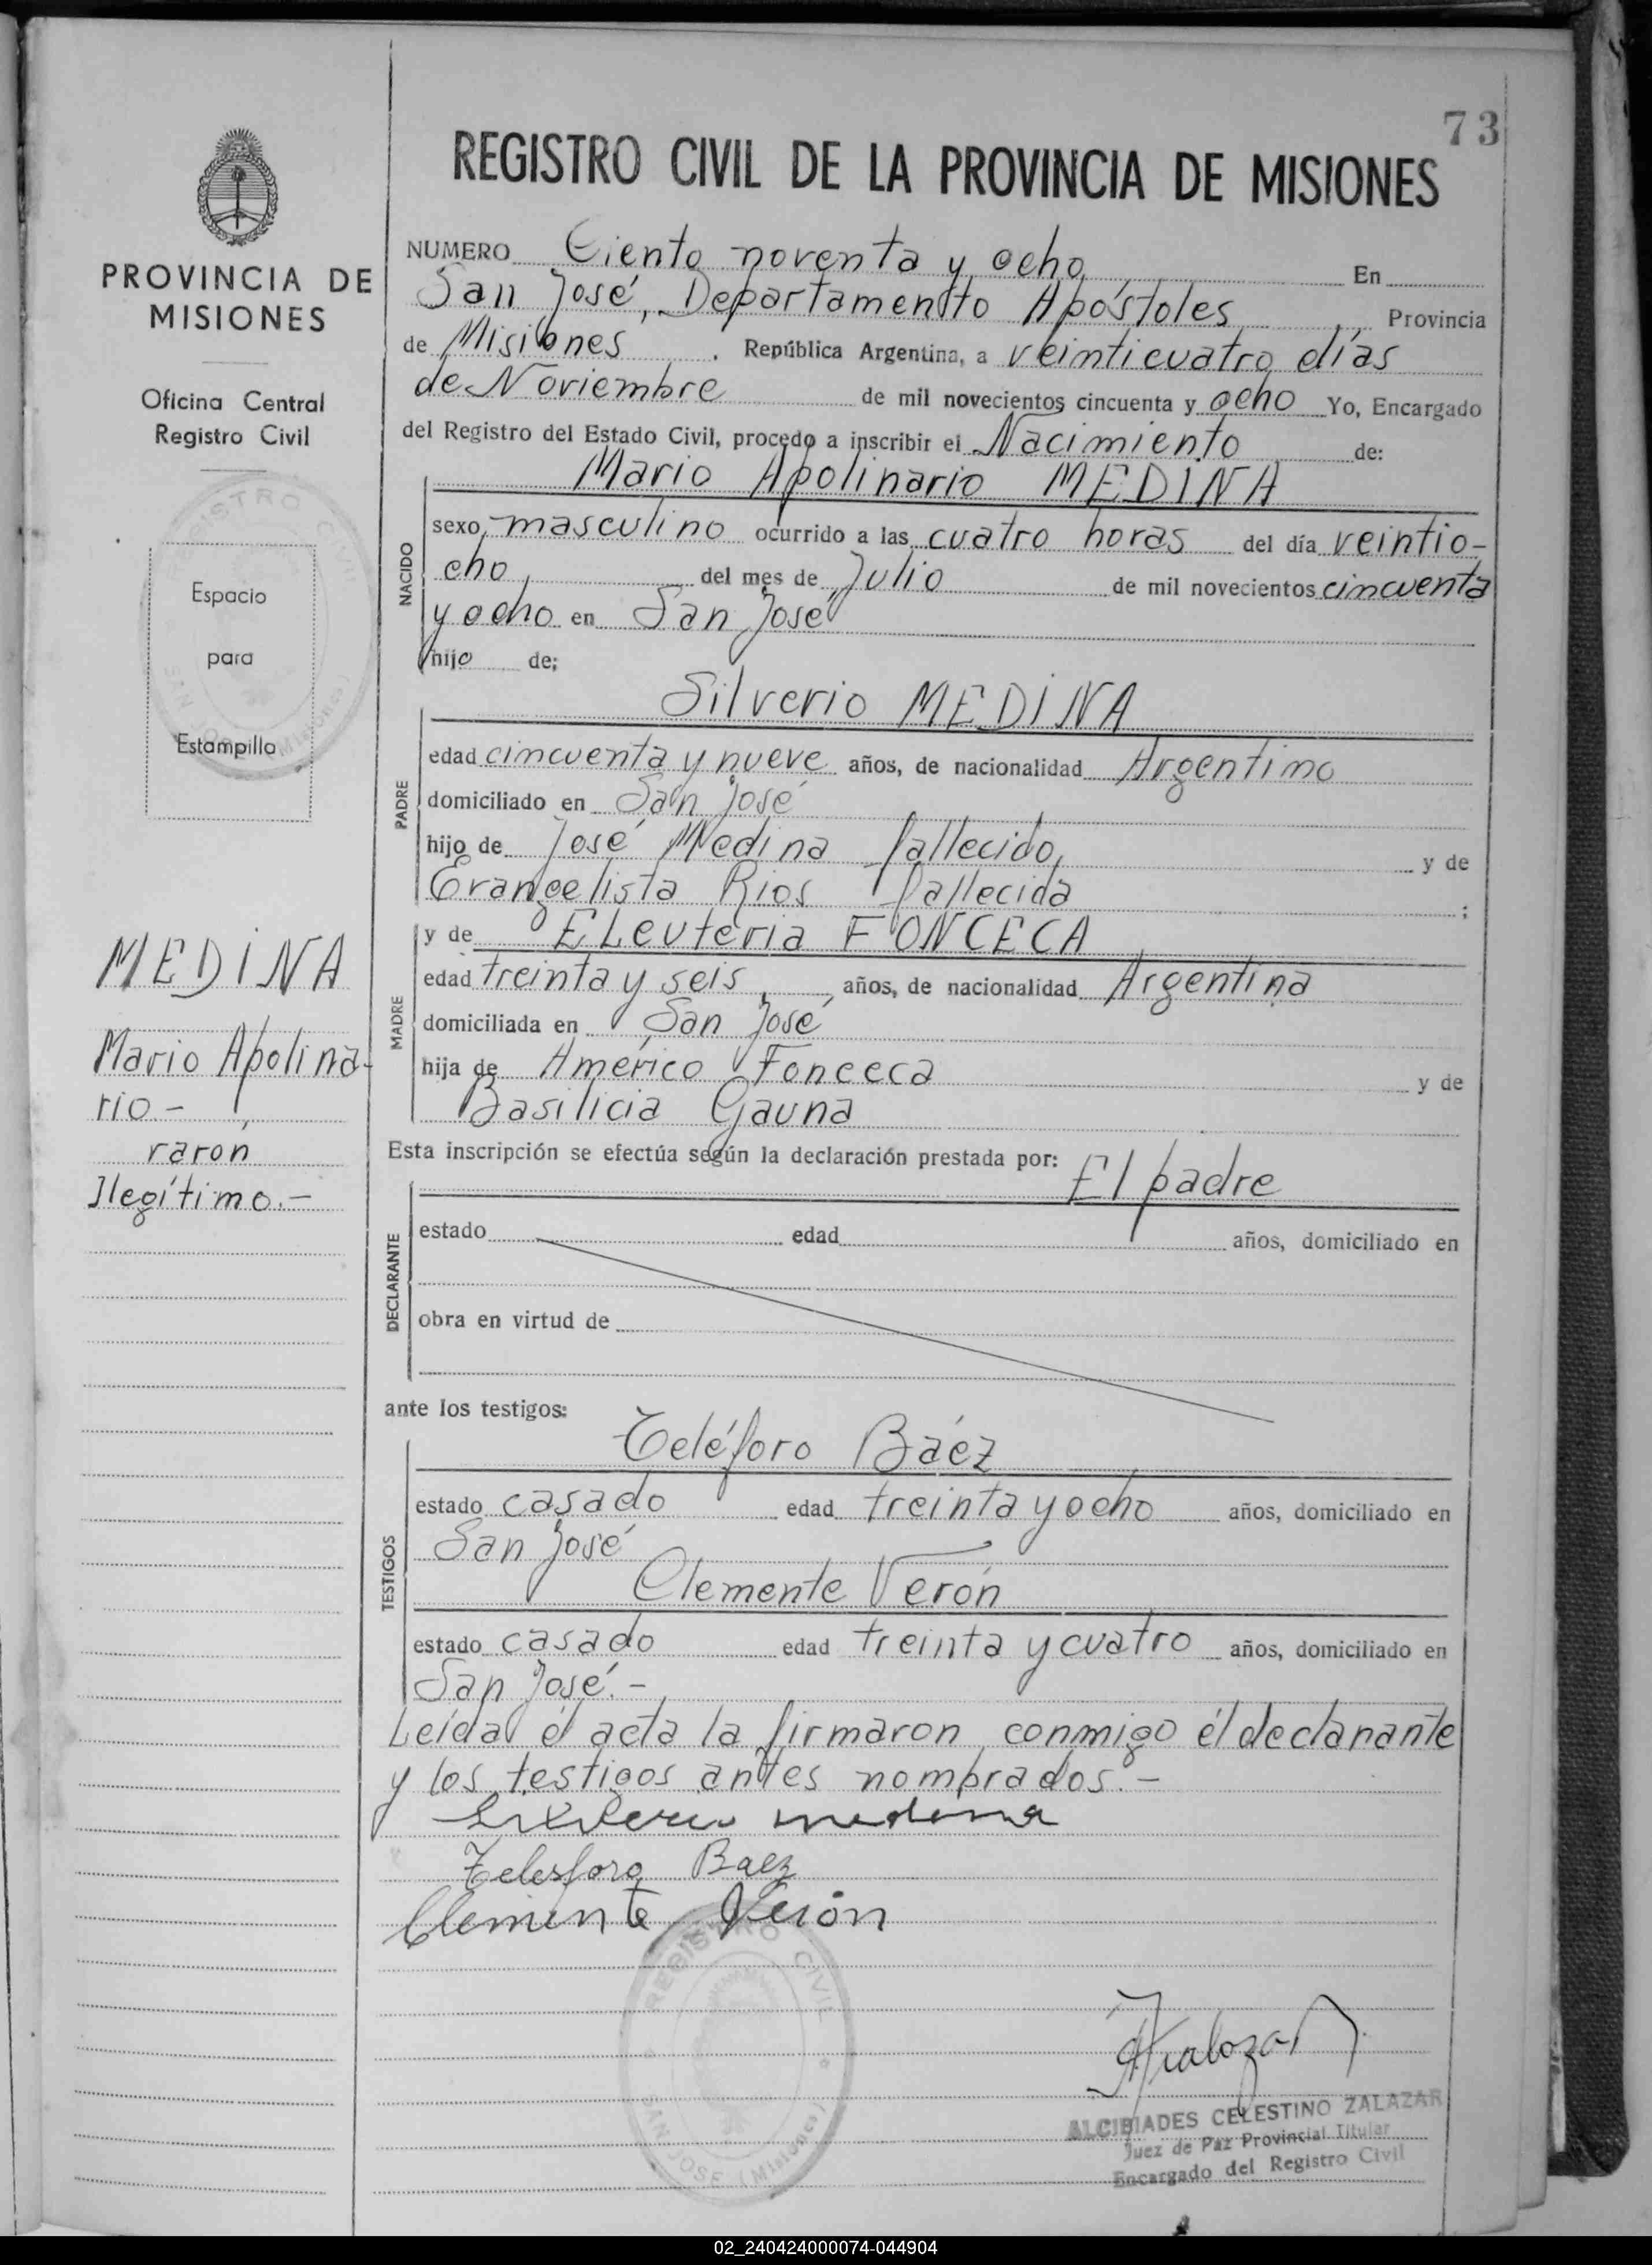 73
REGISTRO CIVIL DE LA PROVINCIA DE MISIONES
PROVINCIA DE
MISIONES
Oficina Central
Registro Civil
REGISTRO CIVIL
SAN JOSE (Misiones)
Espacio
para
Estampilla
MEDINA
Mario Apolina-
rio.-
varon
Ilegítimo.-
NUMERO Ciento noventa y ocho, En
San José, Departamentto Apóstoles, Provincia
de Misiones. República Argentina, a veinticuatro días
de Noviembre de mil novecientos cincuenta y ocho Yo, Encargado
del Registro del Estado Civil, procedo a inscribir el Nacimiento de:
Mario Apolinario MEDINA
NACIDO
sexo, masculino ocurrido a las cuatro horas del día veintio-
cho, del mes de Julio de mil novecientos cincuenta
y ocho en San José
hijo de;
Silverio MEDINA
PADRE
edad cincuenta y nueve años, de nacionalidad Argentino
domiciliado en San José
hijo de José Medina fallecido, y de
Evangelista Rios fallecida ;
y de ELeuteria FONCECA
MADRE
edad treinta y seis, años, de nacionalidad Argentina
domiciliada en San José
hija de Américo Fonceca y de
Basilicia Gauna
Esta inscripción se efectúa según la declaración prestada por:
El padre
DECLARANTE
estado edad años, domiciliado en
obra en virtud de
ante los testigos:
Teléforo Báez
TESTIGOS
estado casado edad treinta y ocho años, domiciliado en
San José
Clemente Verón
estado casado edad treinta y cuatro años, domiciliado en
San José.-
Leída el acta la firmaron conmigo él declarante
y los testigos antes nombrados.-
Silverio medina
Telesforo Baez
Clemente Verón
REGISTRO CIVIL
SAN JOSE (Misiones)
AZalazar
ALCIBIADES CELESTINO ZALAZAR
Juez de Paz Provincial Titular
Encargado del Registro Civil
02_240424000074-044904